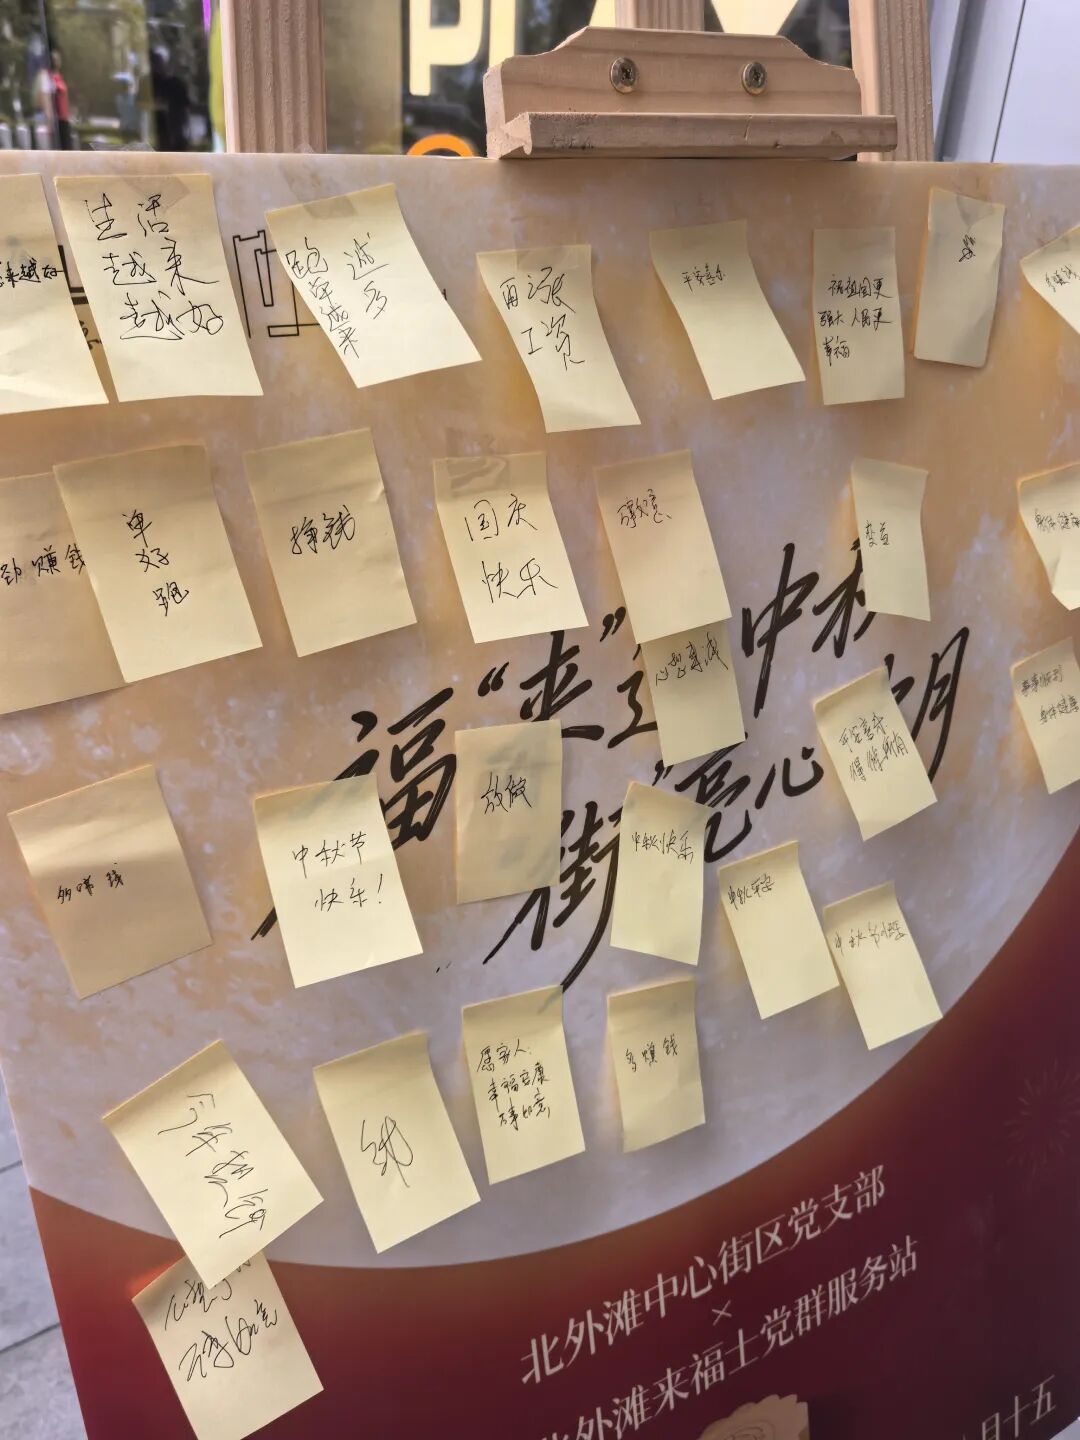 PL
越来越好
生活
越来
越好
跑
单
越来
越多
再涨
工资
平安喜乐
祝祖国更
强大 人民更
幸福
多赚钱
劲赚钱
单
好
跑
挣钱
国庆
快乐
万事如意
身体健康
福“来”
中秋
心想事成
街
亮心
月
平安喜乐
得偿所有
身体健康
多赚钱
中秋节
快乐!
放假
中秋快乐
中秋平安
中秋节快乐
愿家人:
幸福安康
万事如意
多赚钱
心想事
万事如意
北外滩中心街区党支部
×
北外滩来福士党群服务站
月十五